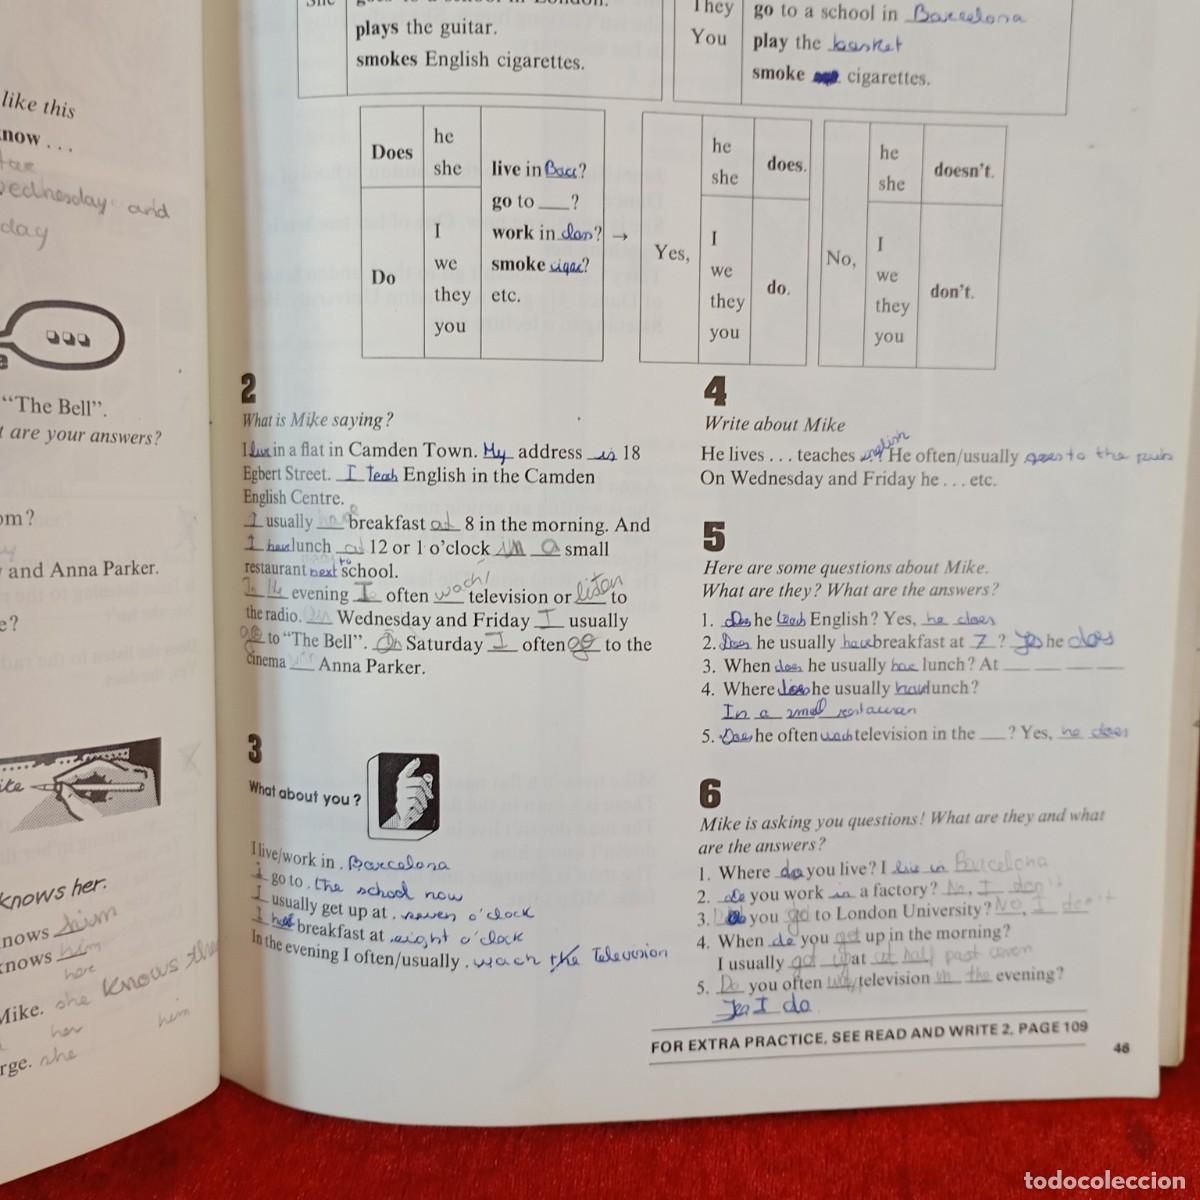 She goes to a school in London.
plays the guitar.
smokes English cigarettes.
They
You
go to a school in Barcelona
play the basket
smoke cigarettes.
like this
now . . .
wednesday and
day
Does
he
she
Do
I
we
they
you
live in Barc?
go to ___?
work in
smoke cigar?
etc.
→
Yes,
he
she
does.
I
we
they
you
do.
No,
he
she
doesn't.
I
we
they
you
don't.
"The Bell".
t are your answers?
om?
and Anna Parker.
e?
2
What is Mike saying?
I live in a flat in Camden Town. My address is 18
Egbert Street. I teach English in the Camden
English Centre.
I usually have breakfast at 8 in the morning. And
I have lunch at 12 or 1 o'clock in a small
restaurant next to school.
In the evening I often wach television or listen to
the radio. On Wednesday and Friday I usually
go to "The Bell". On Saturday I often go to the
cinema Anna Parker.
3
What about you?
I live/work in . Barcelona
I go to . the school now
I usually get up at . seven o'clock
I breakfast at . eight o'clock
In the evening I often/usually . wach the Television
4
Write about Mike
english
He lives . . . teaches He often/usually goes to the pub
On Wednesday and Friday he . . . etc.
5
Here are some questions about Mike.
What are they? What are the answers?
1. Does he teach English? Yes, he does
2. Does he usually have breakfast at 7? Yes he does
3. When does he usually have lunch? At ___ ___ ___ ___
4. Where does he usually have lunch?
In a small restauran
5. Does he often wach television in the ___? Yes, he does
6
Mike is asking you questions! What are they and what
are the answers?
1. Where do you live? I live in Barcelona
2. do you work in a factory? No, I don't
3. Do you go to London University? No, I don't
4. When do you get up in the morning?
I usually get up at at half past seven
5. Do you often television in the evening?
Yes I do
FOR EXTRA PRACTICE, SEE READ AND WRITE 2, PAGE 109
46
knows her.
nows him
knows him
here
Mike. she knows
her him
rge. she
todocoleccion